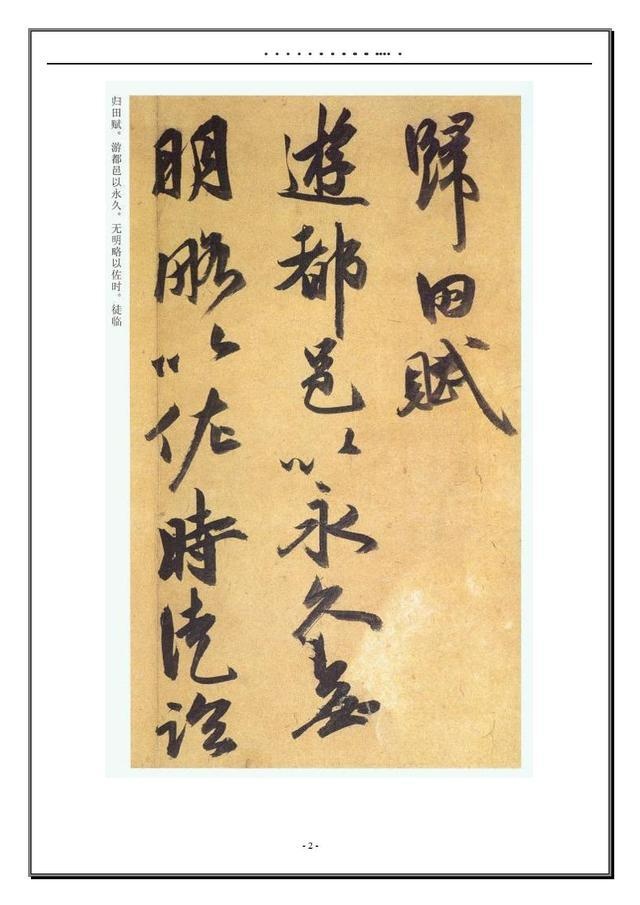 歸田賦
遊都邑以永久無
明略以佐時徒臨
归田赋。游都邑以永久。无明略以佐时。徒临
- 2 -